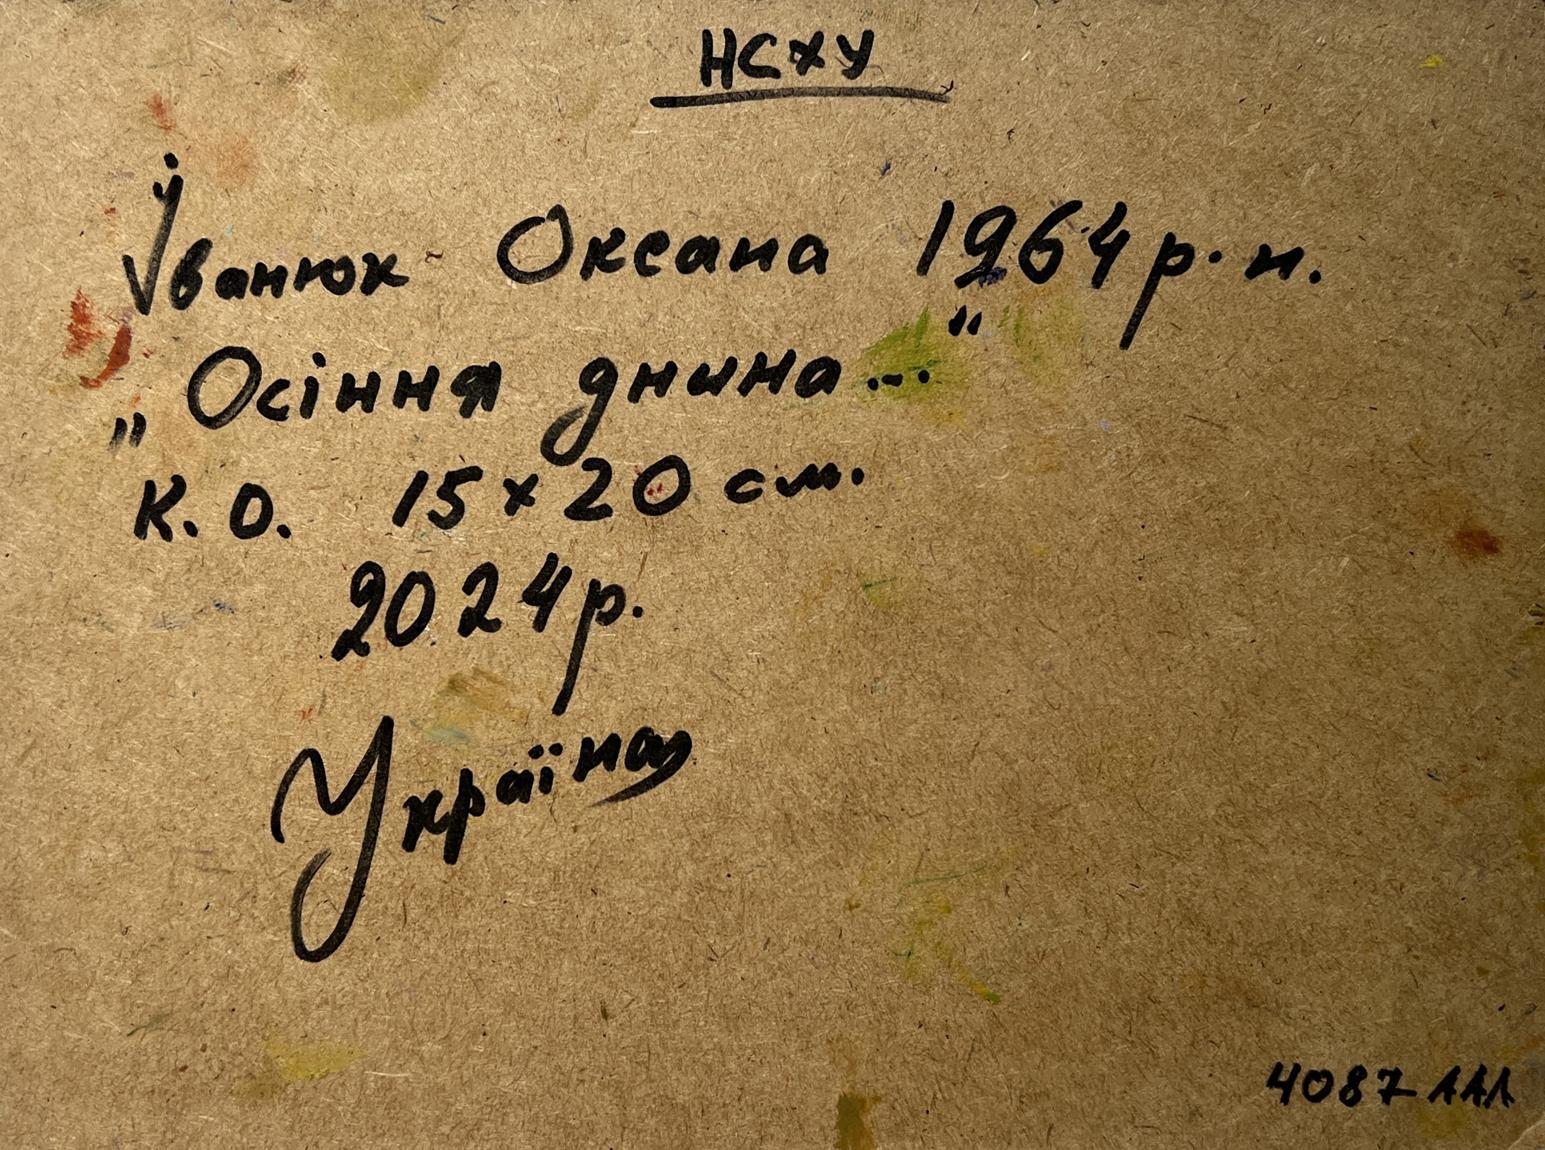 НСХУ
Іванюк Оксана 1964 р.н.
„Осіння днина..."
К.О. 15×20 см.
2024р.
Україна
4087 ААЛ